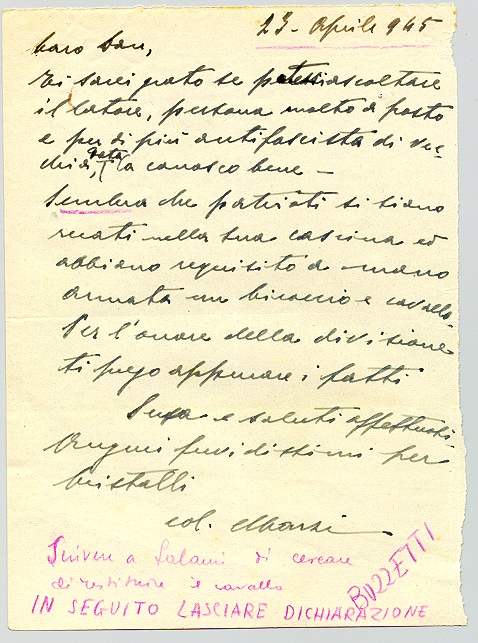 23- Aprile 945
Caro Dan,
ti sarei grato se potessi ascoltare
il latore, persona molto a posto
e per di più antifascista di vec-
chia data, la conosco bene -
Sembra che patrioti si siano
recati nella sua cascina ed
abbiano requisito a mano
armata un biroccio e cavallo.
Per l'onore della divisione
ti prego appurare i fatti
Scusa e saluti affettuosi
Auguri fervidissimi per
col.
Scrivere a Salami di cercare
di restituire il cavallo
BUZZETTI
IN SEGUITO LASCIARE DICHIARAZIONE